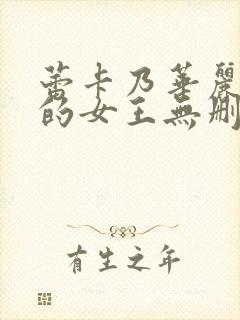 蕾卡乃華麗
的女王無刪
有生之年